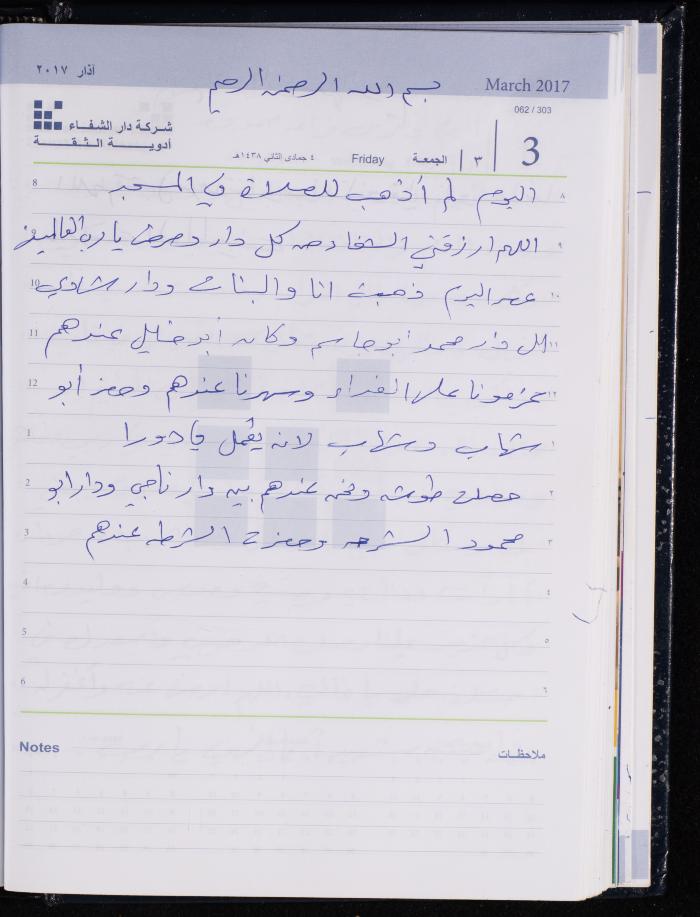 آذار ٢٠١٧
بسم الله الرحمن الرحيم
March 2017
062 / 303
شركة دار الشفاء
أدوية الثقة
٤ جمادى الثاني ١٤٣٨هـ
Friday الجمعة ٣ 3
8 اليوم لم أذهب للصلاة في المسجد ٨
اللهم ارزقني الشفاء من كل داء ومرض يا رب العالمين ٩
10 عصر اليوم ذهبت انا والبنات ودار شادي ١٠
11 الى دار محمد أبو جاسم وكان أبو خليل عندهم ١١
12 عزمونا على الغداء وسهرنا عندهم وحضر أبو ١٢
1 شهاب وشهاب لانه يعمل في دورا ١
2 حصلت طوشه ونحن عندهم بين دار ناجي ودار ابو ٢
3 محمود الشرحه وحضرت الشرطه عندهم ٣
4 ٤
5 ٥
6 ٦
Notes ملاحظات